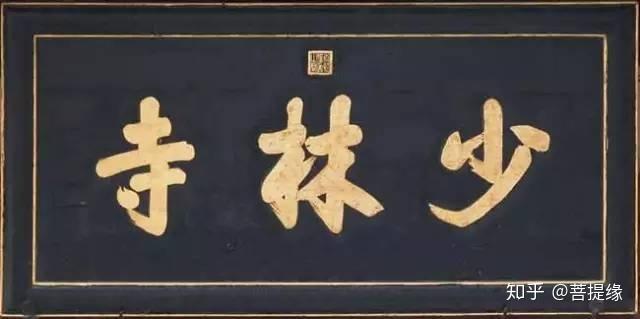 少林寺
知乎 @菩提缘